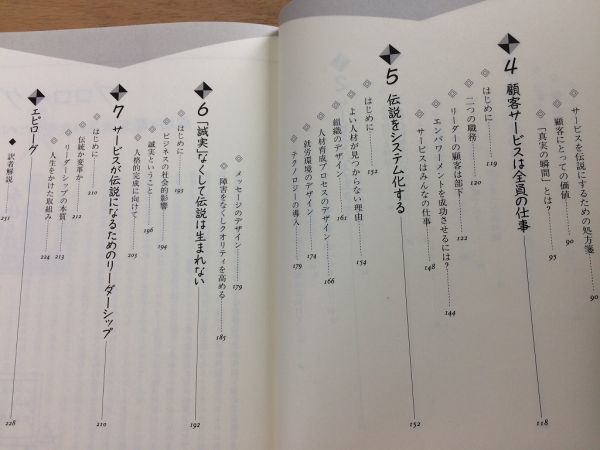 サービスを伝説にするための処方箋 90
顧客にとっての価値 90
「真実の瞬間」とは? 95
4 顧客サービスは全員の仕事 118
はじめに 119
二つの職務 120
リーダーの顧客は部下 122
エンパワーメントを成功させるには? 144
サービスはみんなの仕事 148
5 伝説をシステム化する 152
はじめに 152
よい人材が見つからない理由 154
組織のデザイン 161
人材育成プロセスのデザイン 166
就労環境のデザイン 174
テクノロジーの導入 179
メッセージのデザイン
障害をなくしクオリティを高める 185
6 「誠実」なくして伝説は生まれない 192
はじめに 193
ビジネスの社会的影響 194
誠実ということ 196
人格的完成に向けて 203
7 サービスが伝説になるためのリーダーシップ 210
はじめに 210
伝統か変革か 212
リーダーシップの本質 213
人生をかけた取組み 224
エピローグ 228
◆ 訳者解説 231